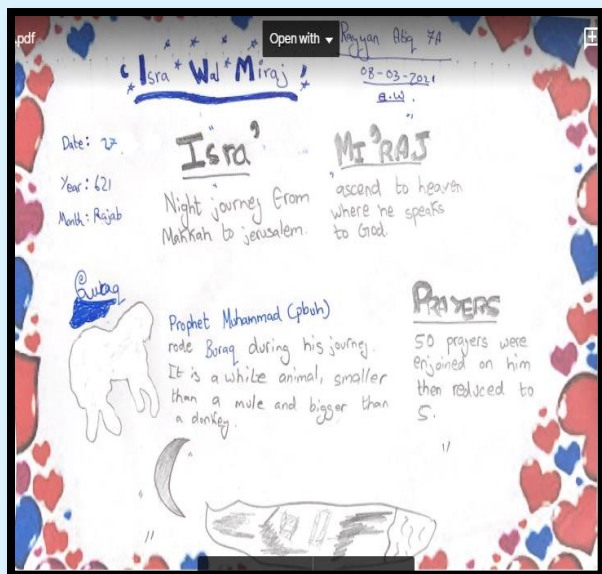 .pdf
Open with
Rayyan Atiq 7A
Isra Wal Miraj
08-03-2021
Date: 27
Year: 621
Month: Rajab
Isra'
Night journey from
Makkah to jerusalem.
MI'RAJ
ascend to heaven
where he speaks
to God.
Prophet Muhammad (pbuh)
rode Buraq during his journey.
It is a white animal, smaller
than a mule and bigger than
a donkey.
PRAYERS
50 prayers were
enjoined on him
then reduced to
5.